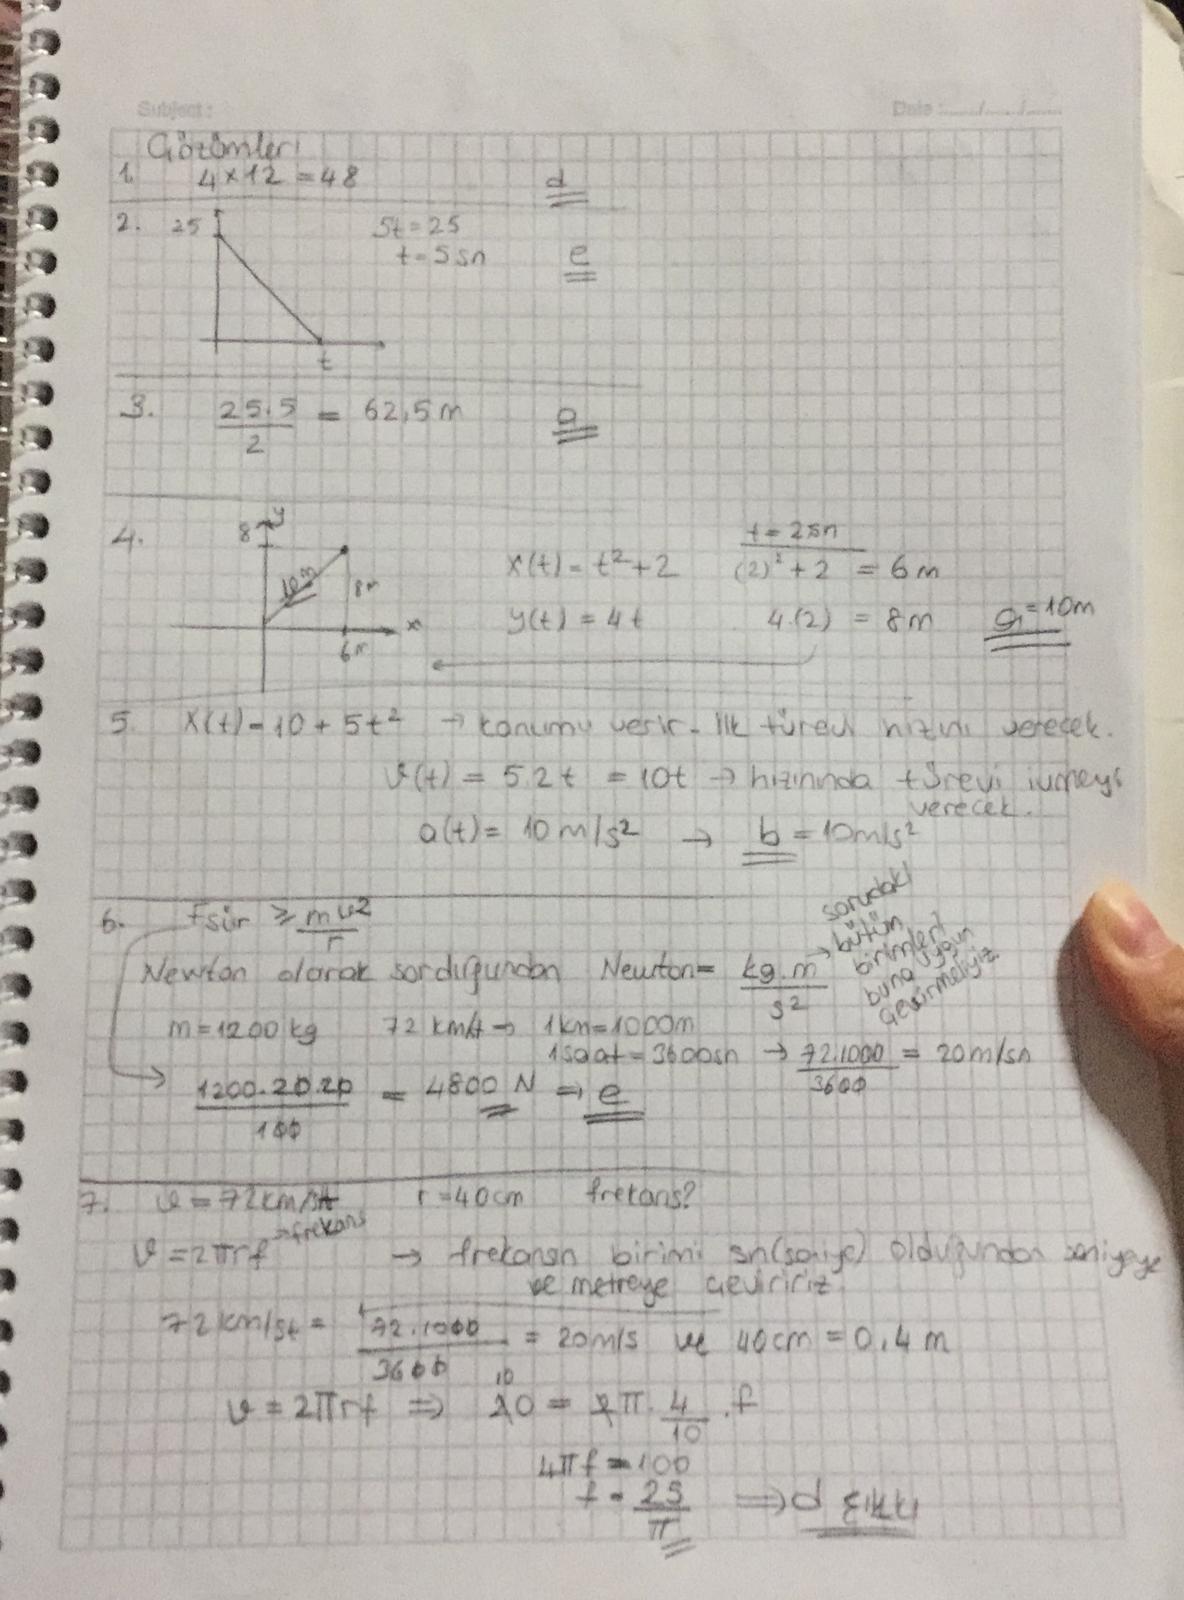 Subject :
Date :...../...../.....
Çözümleri
1. 4 x 12 = 48 d
2. 25 5t = 25
t = 5 sn e
t
3. 25.5 / 2 = 62,5 m a
4. 8 y t = 2 sn
10m 8m x(t) = t² + 2 (2)² + 2 = 6 m
x y(t) = 4t 4.(2) = 8 m a = 10m
6m
5. x(t) = 10 + 5t² → konumu verir. İlk türevi hızını verecek.
v(t) = 5.2t = 10t → hızınında türevi ivmeyi
verecek.
a(t) = 10 m/s² → b = 10m/s²
6. Fsür ≥ mv² / r
Newton olarak sorduğundan Newton = kg.m / s² → sorudaki
bütün
birimleri
buna uygun
çevirmeliyiz
m = 1200 kg 72 km/st → 1km = 1000m
1 saat = 3600sn → 72.1000 / 3600 = 20 m/sn
1200.20.20 / 100 = 4800 N ⇒ e
7. v = 72 km/st r = 40 cm frekans?
v = 2πrf → frekans → frekansın birimi sn(saniye) olduğundan saniyeye
ve metreye çeviririz.
72 km/st = 72.1000 / 3600 = 20 m/s ve 40cm = 0,4 m
10
v = 2πrf ⇒ 20 = 2π. 4 / 10 .f
4πf = 100
f = 25 / π ⇒ d şıkkı